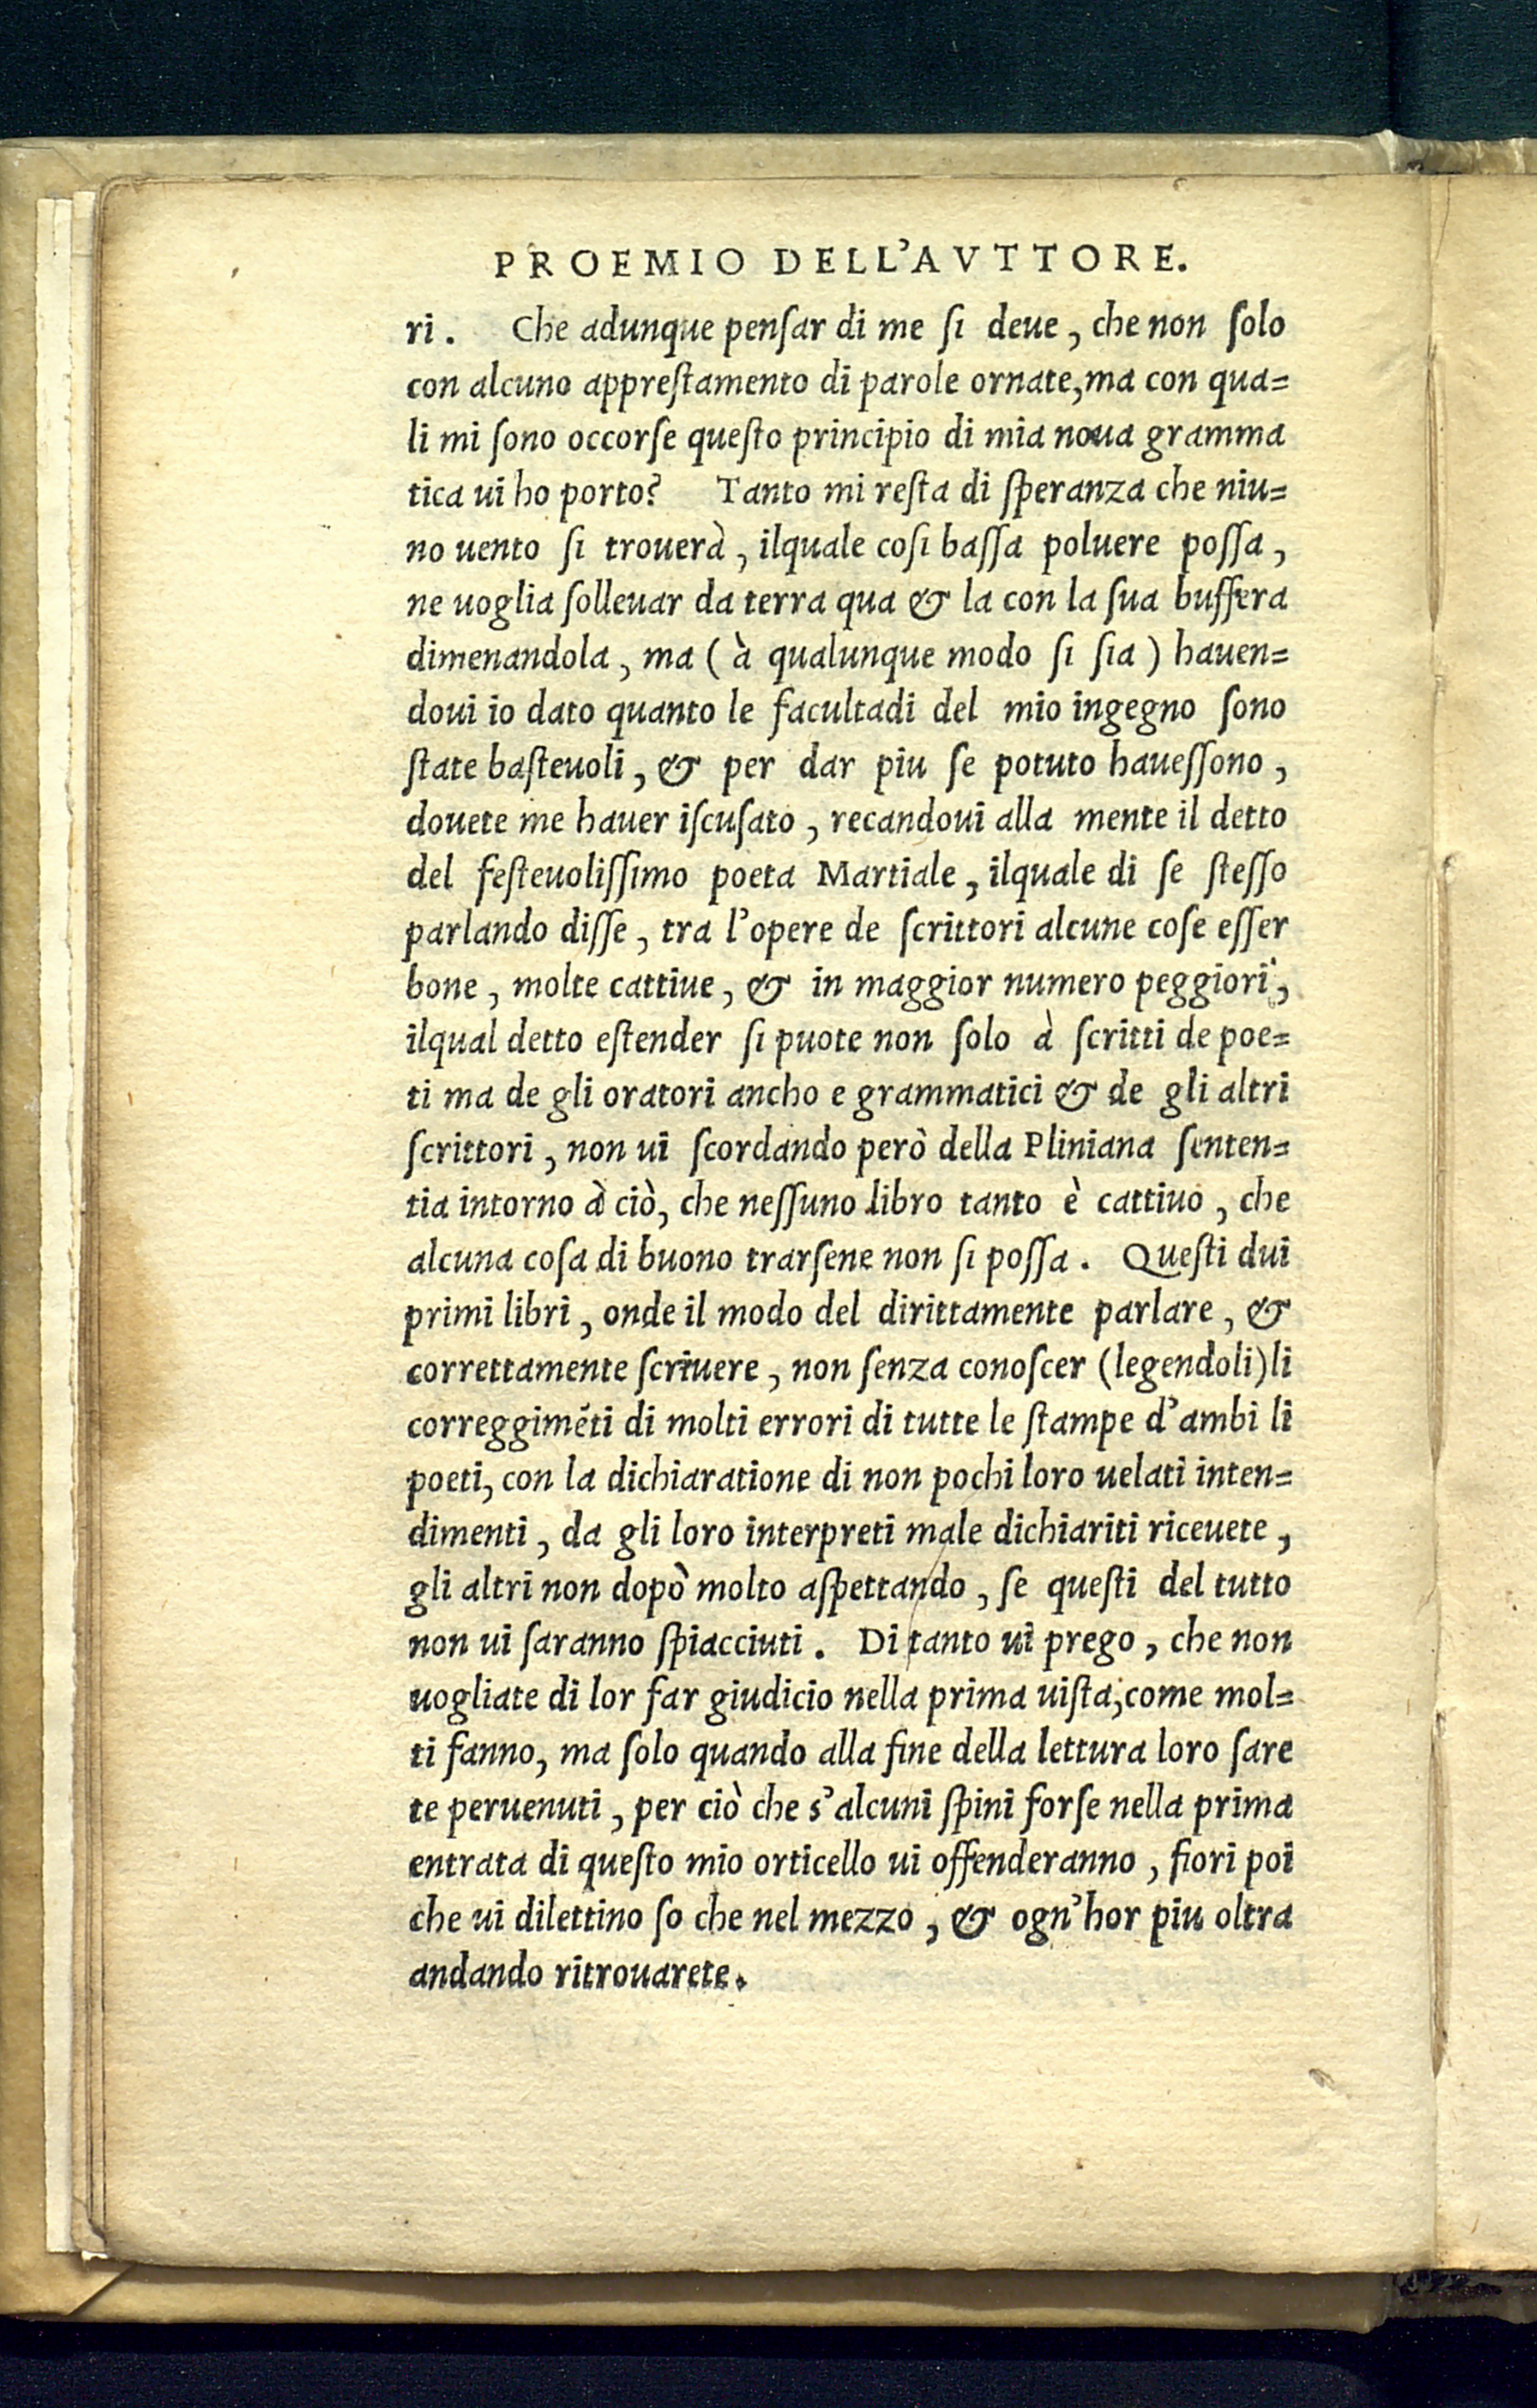 PROEMIO DELL'AVTTORE.
ri. Che adunque penſar di me ſi deue, che non ſolo
con alcuno appreſtamento di parole ornate, ma con qua=
li mi ſono occorſe queſto principio di mia noua gramma
tica ui ho porto? Tanto mi reſta di ſperanza che niu=
no uento ſi trouerà, ilquale coſi baſſa poluere poſſa,
ne uoglia ſolleuar da terra qua & la con la ſua buffera
dimenandola, ma (à qualunque modo ſi ſia) hauen=
doui io dato quanto le facultadi del mio ingegno ſono
ſtate baſteuoli, & per dar piu ſe potuto haueſſono,
douete me hauer iſcuſato, recandoui alla mente il detto
del feſteuoliſſimo poeta Martiale, ilquale di ſe ſteſſo
parlando diſſe, tra l'opere de ſcrittori alcune coſe eſſer
bone, molte cattiue, & in maggior numero peggiori,
ilqual detto eſtender ſi puote non ſolo à ſcritti de poe=
ti ma de gli oratori ancho e grammatici & de gli altri
ſcrittori, non ui ſcordando però della Pliniana ſenten=
tia intorno à ciò, che neſſuno libro tanto è cattiuo, che
alcuna coſa di buono trarſene non ſi poſſa. Queſti dui
primi libri, onde il modo del dirittamente parlare, &
correttamente ſcriuere, non ſenza conoſcer (legendoli) li
correggimẽti di molti errori di tutte le ſtampe d'ambi li
poeti, con la dichiaratione di non pochi loro uelati inten=
dimenti, da gli loro interpreti male dichiariti riceuete,
gli altri non dopò molto aſpettando, ſe queſti del tutto
non ui ſaranno ſpiacciuti. Di tanto ui prego, che non
uogliate di lor far giudicio nella prima uiſta, come mol=
ti fanno, ma ſolo quando alla fine della lettura loro ſare
te peruenuti, per ciò che s'alcuni ſpini forſe nella prima
entrata di queſto mio orticello ui offenderanno, fiori poi
che ui dilettino ſo che nel mezzo, & ogn'hor piu oltra
andando ritrouarete.